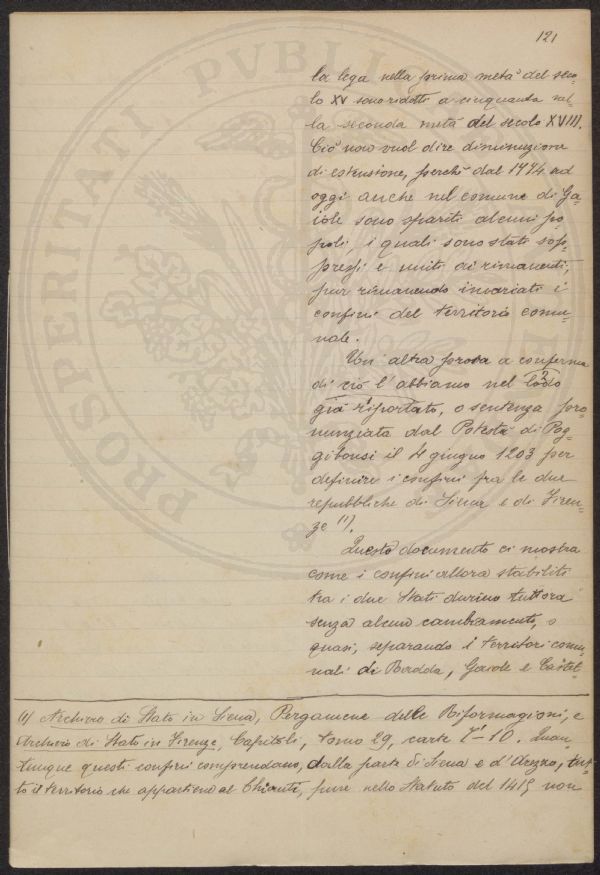 121
la lega nella prima metà del seco-
lo XV sono ridotti a cinquanta nel-
la seconda metà del secolo XVIII.
Ciò non vuol dire diminuzione
di estensione, perchè dal 1774 ad
oggi anche nel comune di Ga-
iole sono spariti alcuni po-
poli, i quali sono stati sop-
pressi e uniti ai rimanenti,
pur rimanendo invariati i
confini del territorio comu-
nale.
Un' altra prova a conferma
di ciò l'abbiamo nel lodo
già riportato, o sentenza pro-
nunziata dal Potestà di Pog-
gibonsi il 4 giugno 1203 per
definire i confini fra le due
repubbliche di Siena e di Firen-
ze (1).
Questo documento ci mostra
come i confini allora stabiliti
tra i due Stati durino tuttora
senza alcun cambiamento, o
quasi, separando i territori comu-
nali di Radda, Gaiole e Castel-
(1) Archivio di Stato in Siena, Pergamene delle Riformagioni, e
Archivio di Stato in Firenze, Capitoli, tomo 29, carte 7-10. Quan-
tunque questi confini comprendano, dalla parte di Siena e d'Arezzo, tut-
to il territorio che appartiene al Chianti, pure nello Statuto del 1415 non
PROSPERITATI PVBLICAE